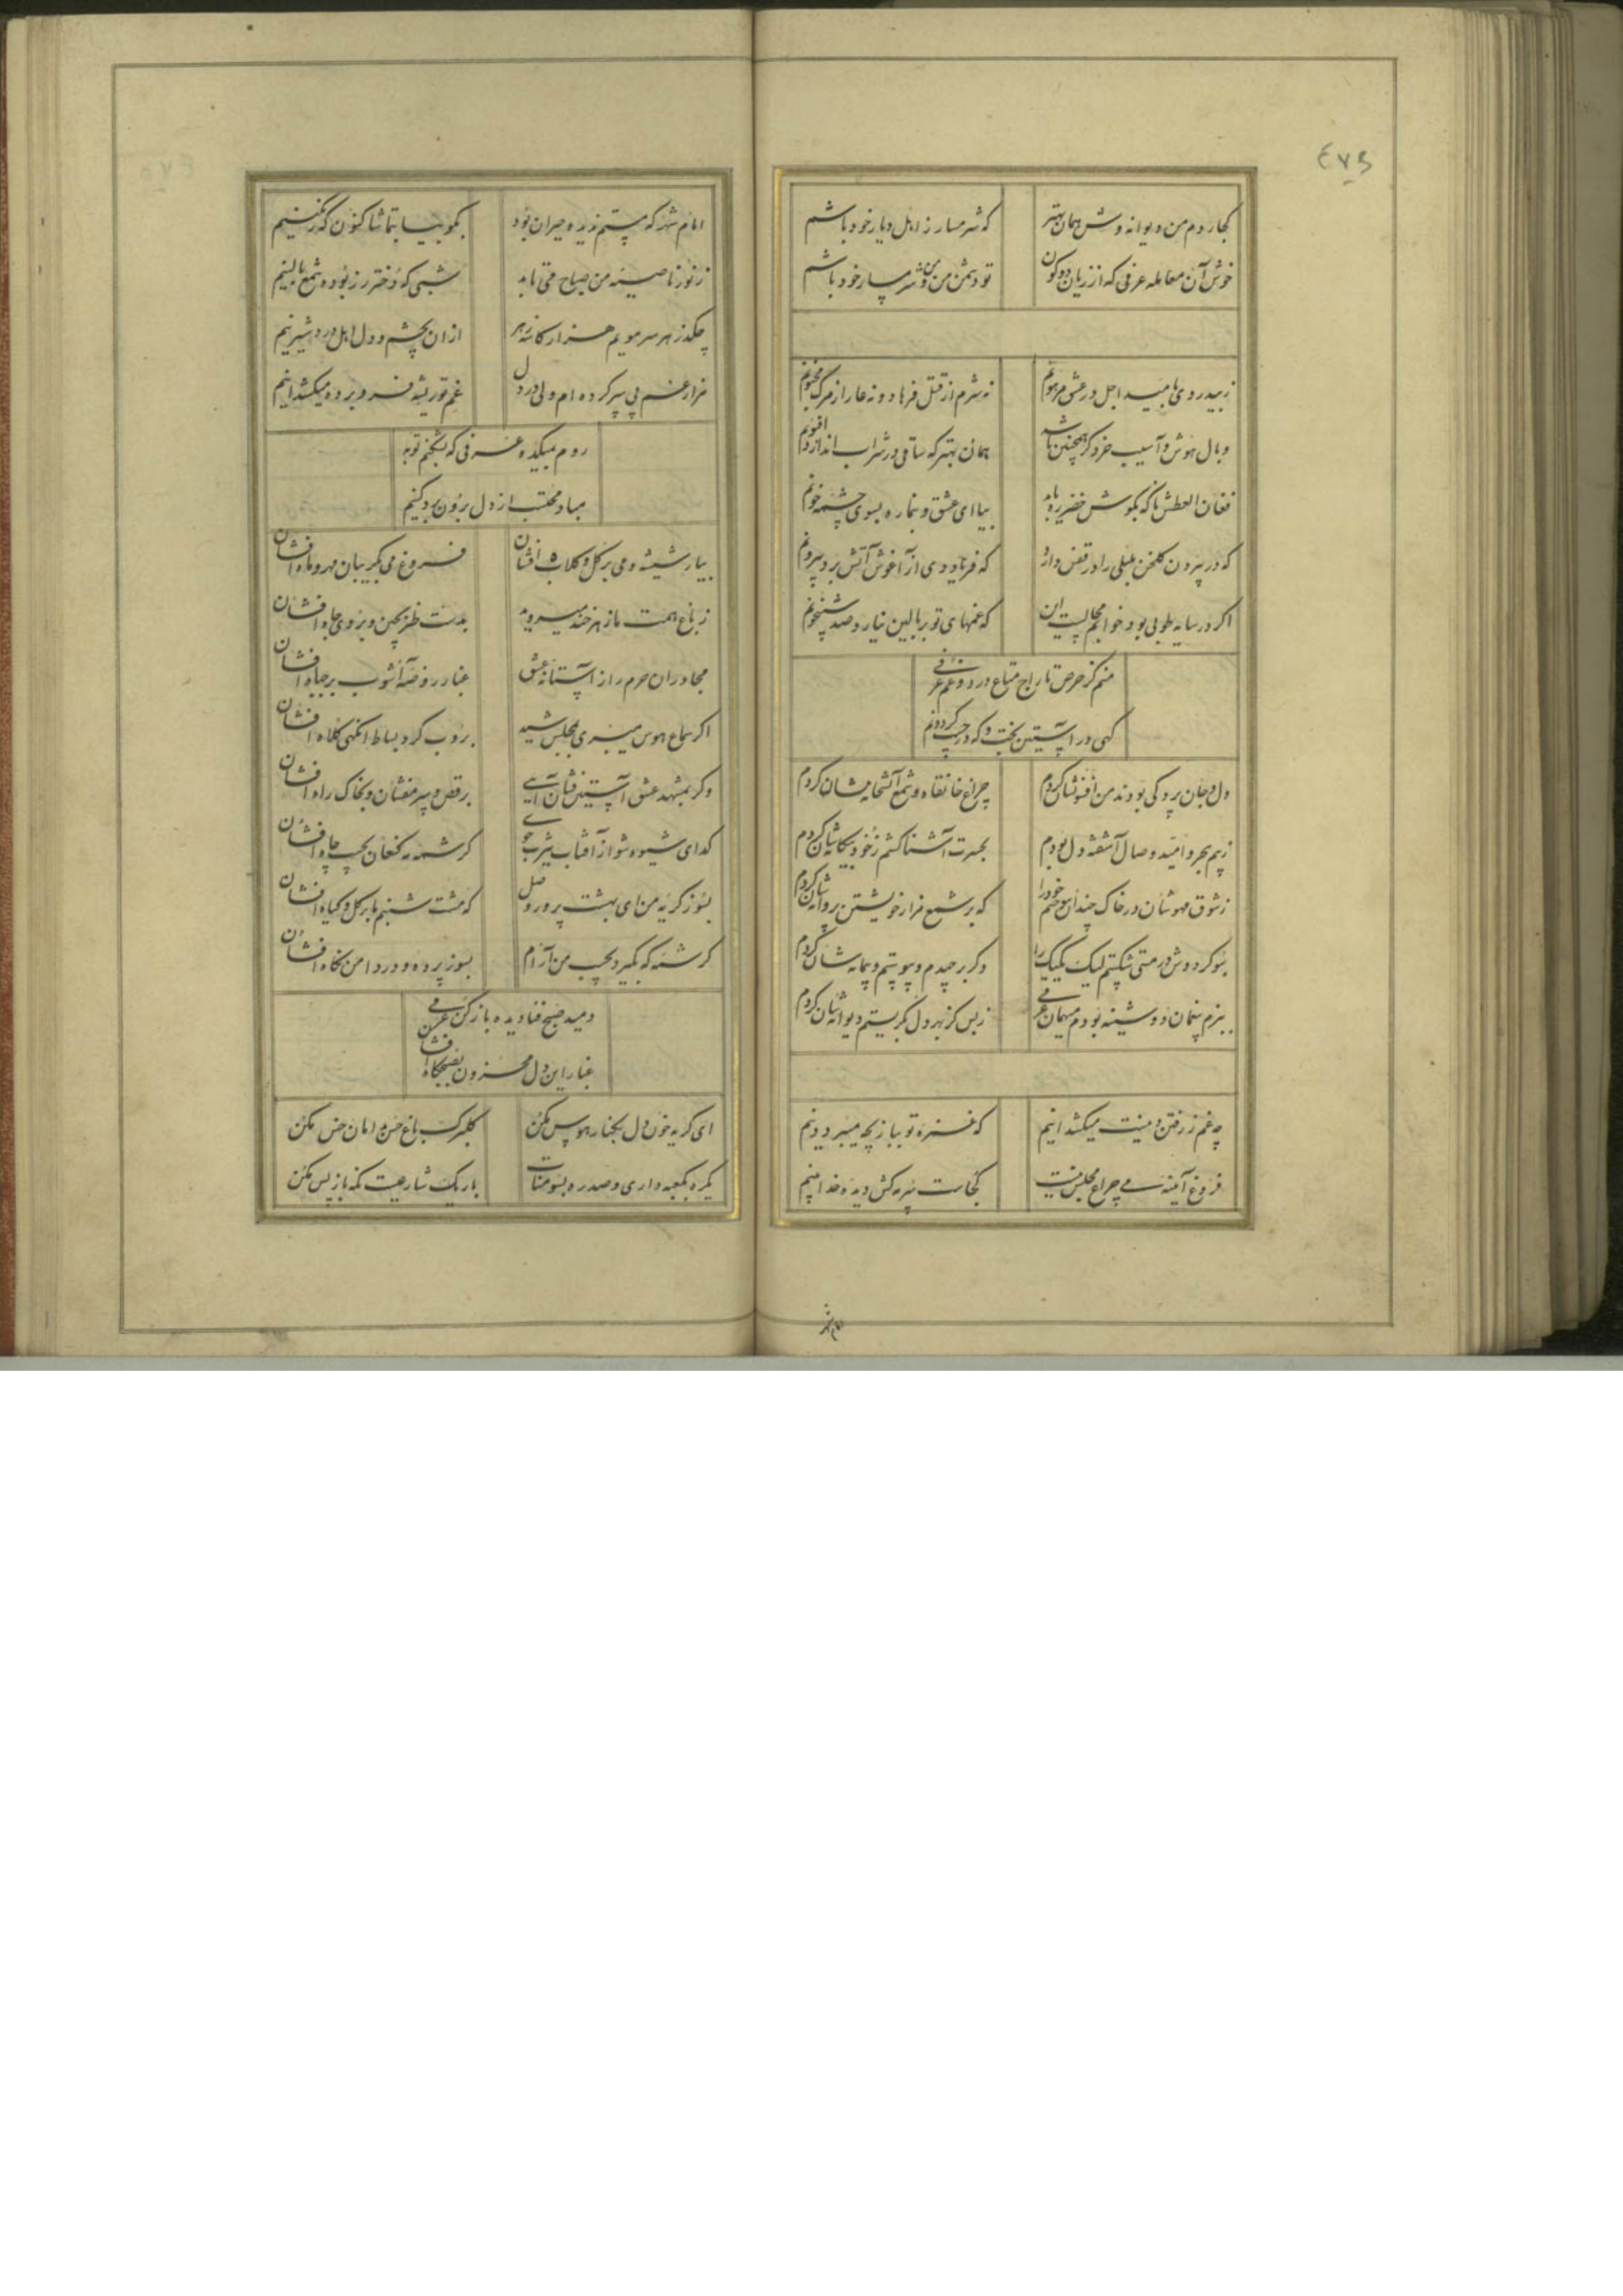 ٤٧٥
کجا روم من دیوانه وش همان بهتر
که شرمسار ز اهل دیار خود باشم
خوش آن معامله عرفی که از زیان دو کون
تو دشمن من و من شرمسار خود باشم
نه شرم از قتل فرهاد و نه عار از مرگ مجنونم
وبال هوش و آسیب خرد گر همچنین باشد
همان بهتر که ساقی در شراب اندازد افیونم
فغان العطش ناگه بگوش خضر ره یابد
بیا ای عشق و بنما ره بسوی چشمه خونم
که در پیرون گلخن بلبلی را در قفس دارد
که فرناوردی از آغوش آتش برد بیرونم
اگر در سایه طوبی بود خوابم محالست این
که غمهای تو بر بالین نیارد صد شبیخونم
منم کز حرص تاراج متاع درد و غم عرفی
گهی در آستین بخت و گه در جیب گردونم
دل و جان پردگی بودند من افسونشان کردم
چراغ خانقاه و شمع آتشخانه شان کردم
ز بیم هجر و امید وصال آشفته دل بودم
بحسرت آشنا گشتم ز خود بیگانه شان کردم
ز شوق مهوشان در خاک چندان سوختم خود را
که بر شمع مزار خویشتن پروانه شان کردم
سبو گر دوش در مستی شکستم لیک یک یک را
دگر برچیدم و پیوستم و پیمانه شان کردم
ببزم بیغمان دوشینه بودم میهمان عرفی
ز بس کز بهر دل بگریستم دیوانه شان کردم
چه غم ز رفتن دینت میکشد اینم
که غمزه تو ببازیچه میبرد دینم
فروغ آئینه می چراغ مجلس نیست
کجاست سرمه کش دیده خدا بینم
امام شهر
امام شهر که مستم ندیده حیران بود
بگو بیا بتماشا کنون که رنگینم
ز نور ناصیه من صباح می تابد
شبی که دختر رز بود شمع بالینم
چکد ز هر سر مویم هزار کاسه زهر
از آن بچشم و دل اهل درد شیرینم
هزار غم پی سپر کرده ام ولی در دل
غم تو ریشه فرو برده میکشد اینم
روم بمیکده عرفی که بشکنم توبه
مباد محتسب از دل برون برد کینم
بیار شیشه و می بر گل و گلاب افشان
فروغ می بگریبان مهر و ماه افشان
ز باغ همت ما زهر خند میروید
بدست طنز بچین و بروی جاه افشان
مجاوران حرم را ز آستانه عشق
غبار روضه آشوب بر جباه افشان
اگر سماع هوس میبری بمجلس شید
بروب گرد بساط آنگهی کلاه افشان
وگر بمشهد عشق آستین فشان آیی
برقص و سر مفشان و بخاک راه افشان
گدای شیوه شو از آفتاب یثرب جوی
کرشمه مه کنعان بجیب چاه افشان
بسوز گریه من ای بهشت پرور وصل
که مشت شبنم ما بر گل و گیاه افشان
کرشمه که نگیرد بجیب من آرام
بسوز پرده و در دامن نگاه افشان
دمید صبح فنا دیده باز کن عرفی
غبار این دل محزون بصبحگاه افشان
ای گریه خون دل بکنار هوس مکن
گلبرگ باغ حسن بدامان خس مکن
یکره بکعبه داری و صد ره بسومنات
باریک شارعیست نگه باز پس مکن